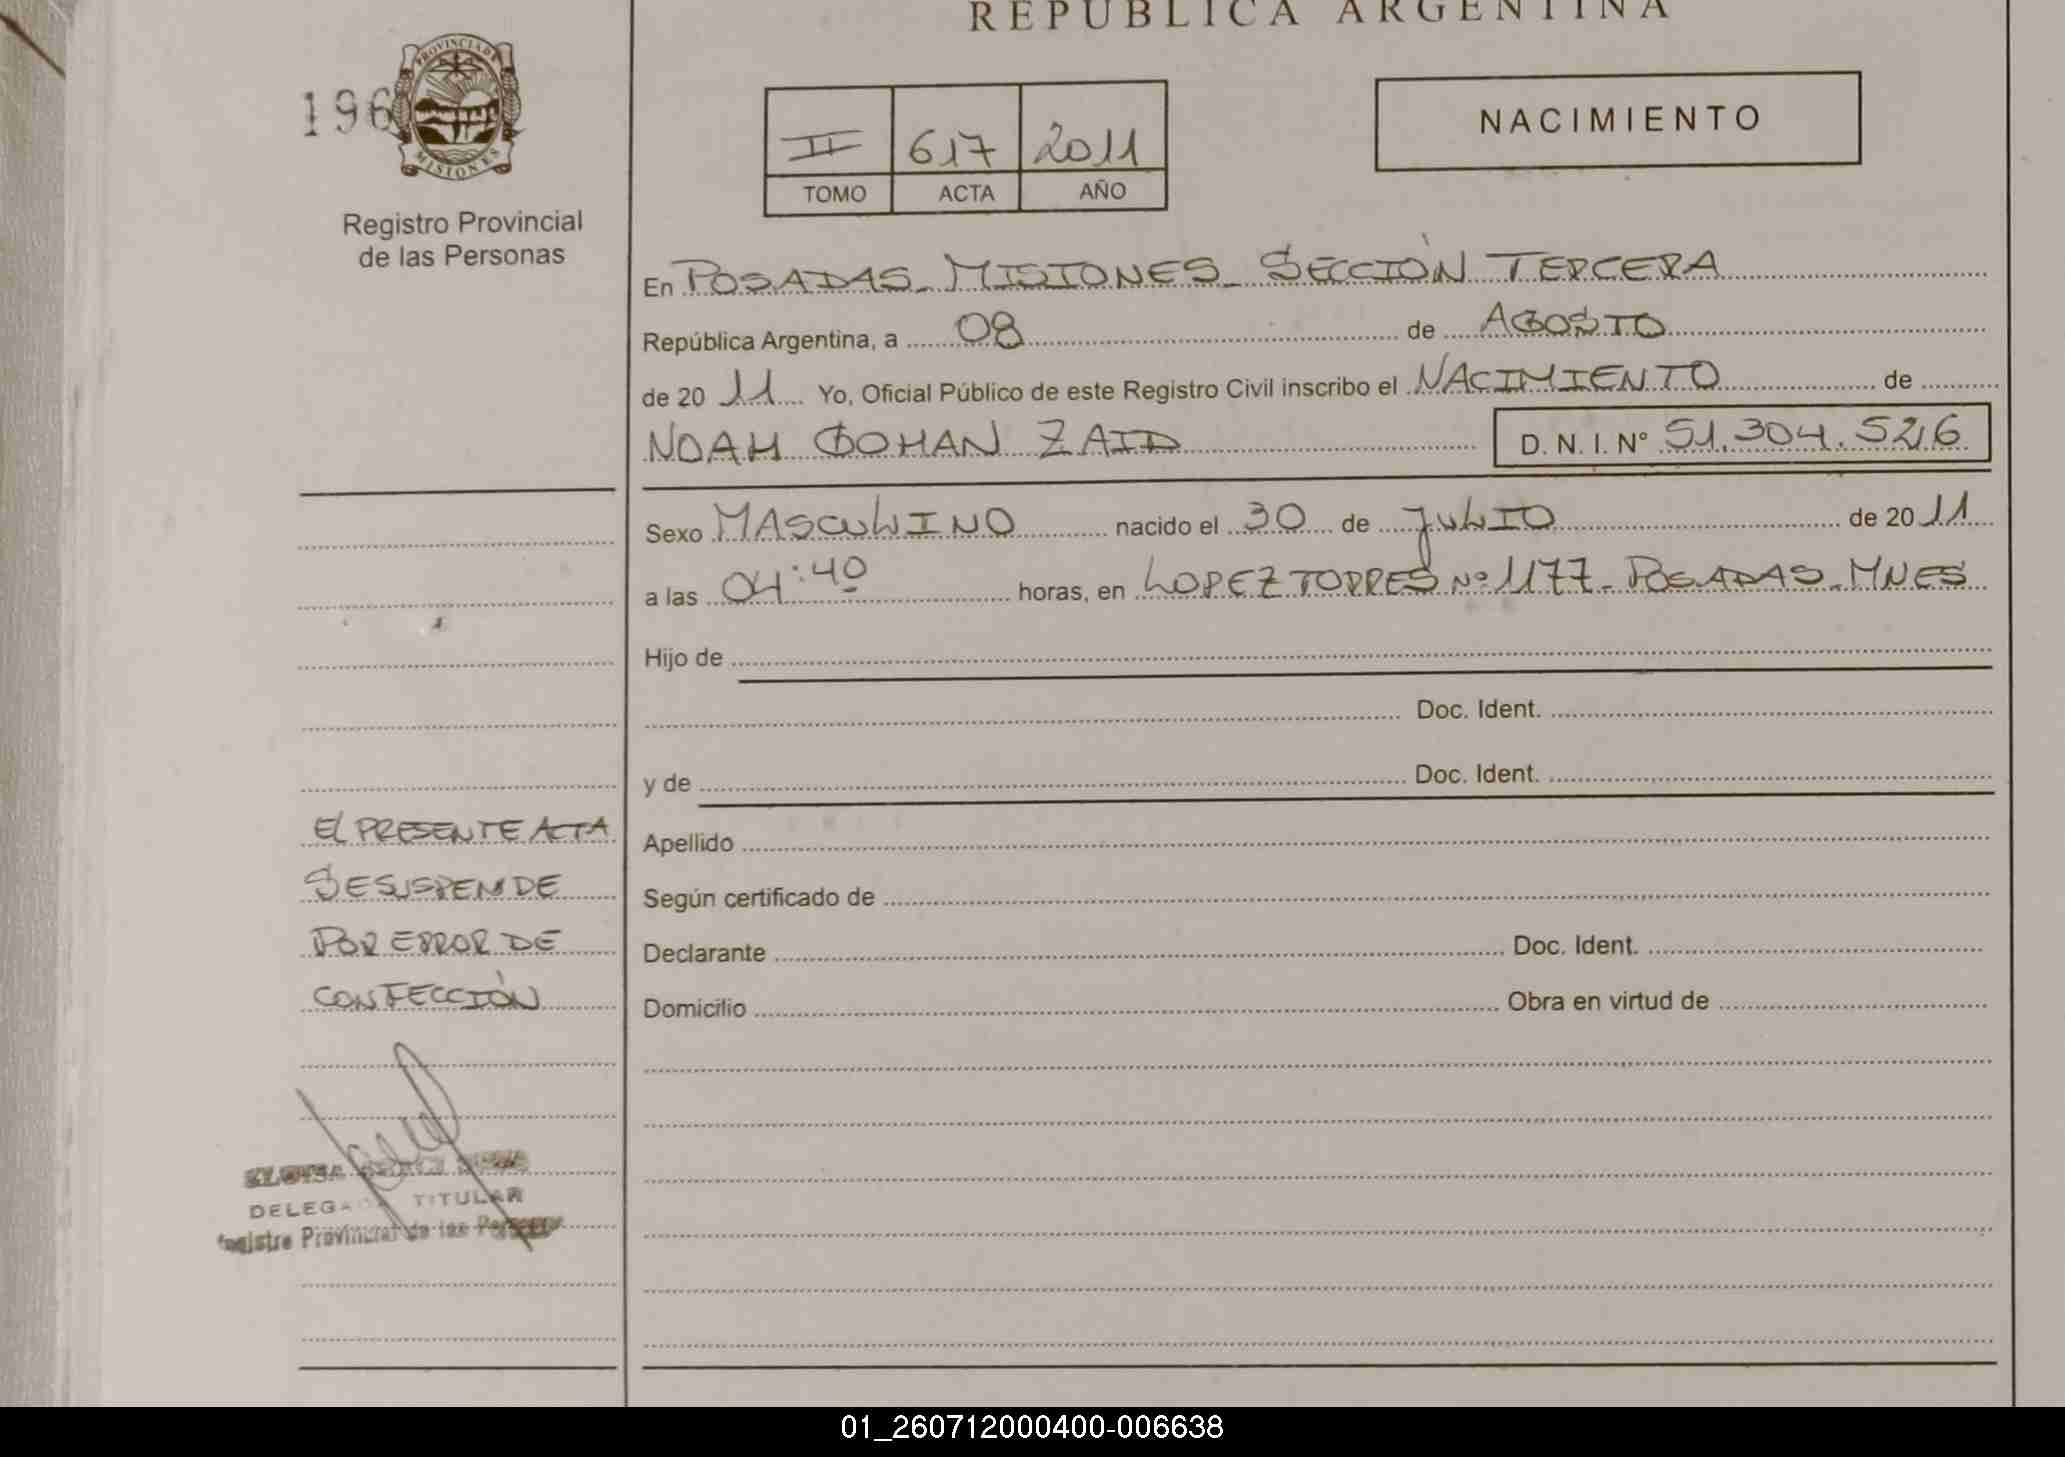 REPUBLICA ARGENTINA
196
PROVINCIA DE
MISIONES
Registro Provincial
de las Personas
II 617 2011
TOMO ACTA AÑO
NACIMIENTO
En POSADAS - MISIONES - SECCIÓN TERCERA
República Argentina, a 08 de AGOSTO
de 20 11 Yo, Oficial Público de este Registro Civil inscribo el NACIMIENTO de
NOAH ZAID D. N. I. Nº 51.304.526
Sexo MASCULINO nacido el 30 de JULIO de 20 11
a las 04:40 horas, en LOPEZ TORRES Nº 1177 - POSADAS - MNES
Hijo de
Doc. Ident.
y de Doc. Ident.
Apellido
Según certificado de
Declarante Doc. Ident.
Domicilio Obra en virtud de
EL PRESENTE ACTA
SE SUSPENDE
POR ERROR DE
CONFECCIÓN
ELOISA
DELEGADA TITULAR
Registro Provincial de las Personas
01_260712000400-006638